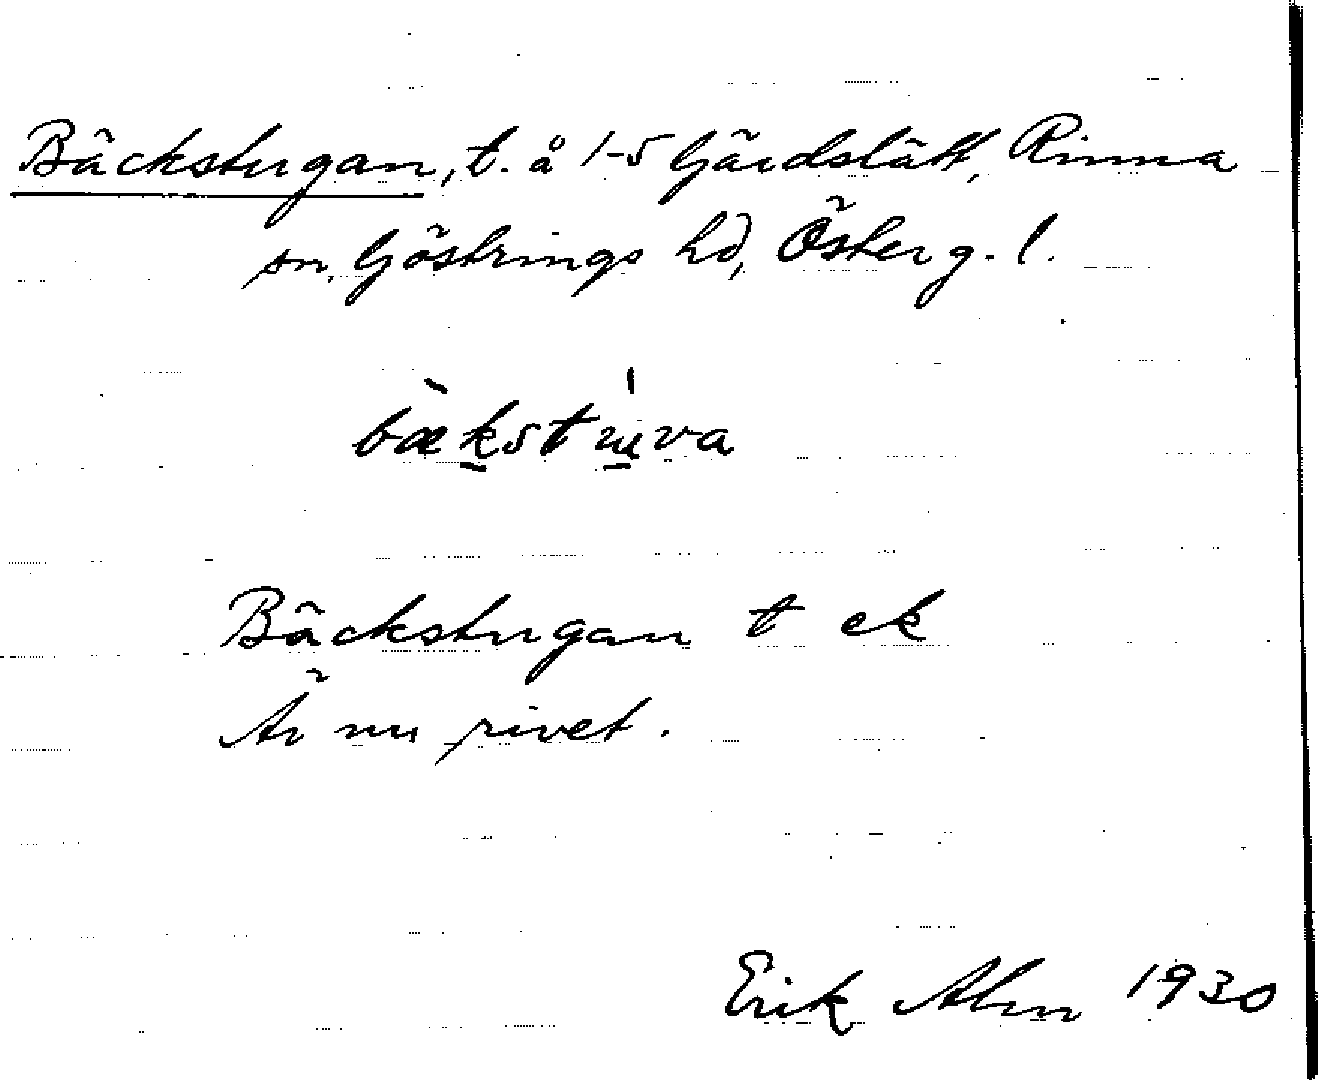 Bäckstugan, t. å 1-5 Gärdslätt, Rinna
sn, Göstrings hd, Österg. l.
bæ̀kstu̍va
Bäckstugan t ek
Är nu rivet.
Erik Alm 1930